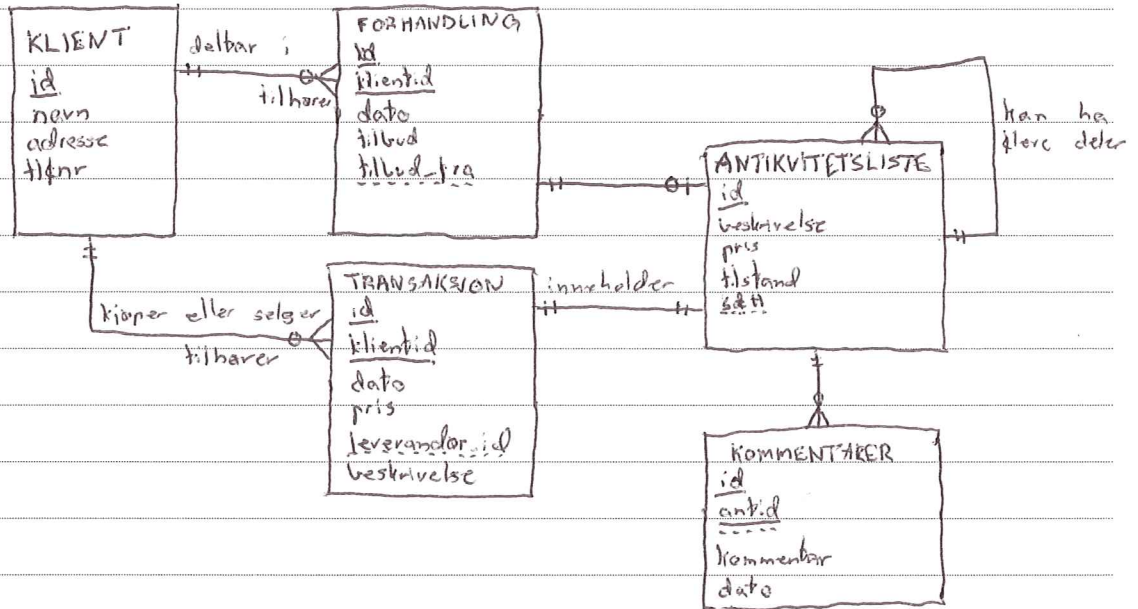 KLIENT
id
navn
adresse
tlfnr
deltar i
tilhører
FORHANDLING
id
klientid
dato
tilbud
tilbud_fra
kan ha
flere deler
ANTIKVITETSLISTE
id
beskrivelse
pris
tilstand
kjøper eller selger
tilhører
TRANSAKSJON
id
klientid
dato
pris
leverandør_id
beskrivelse
inneholder
KOMMENTARER
id
antid
kommentar
dato